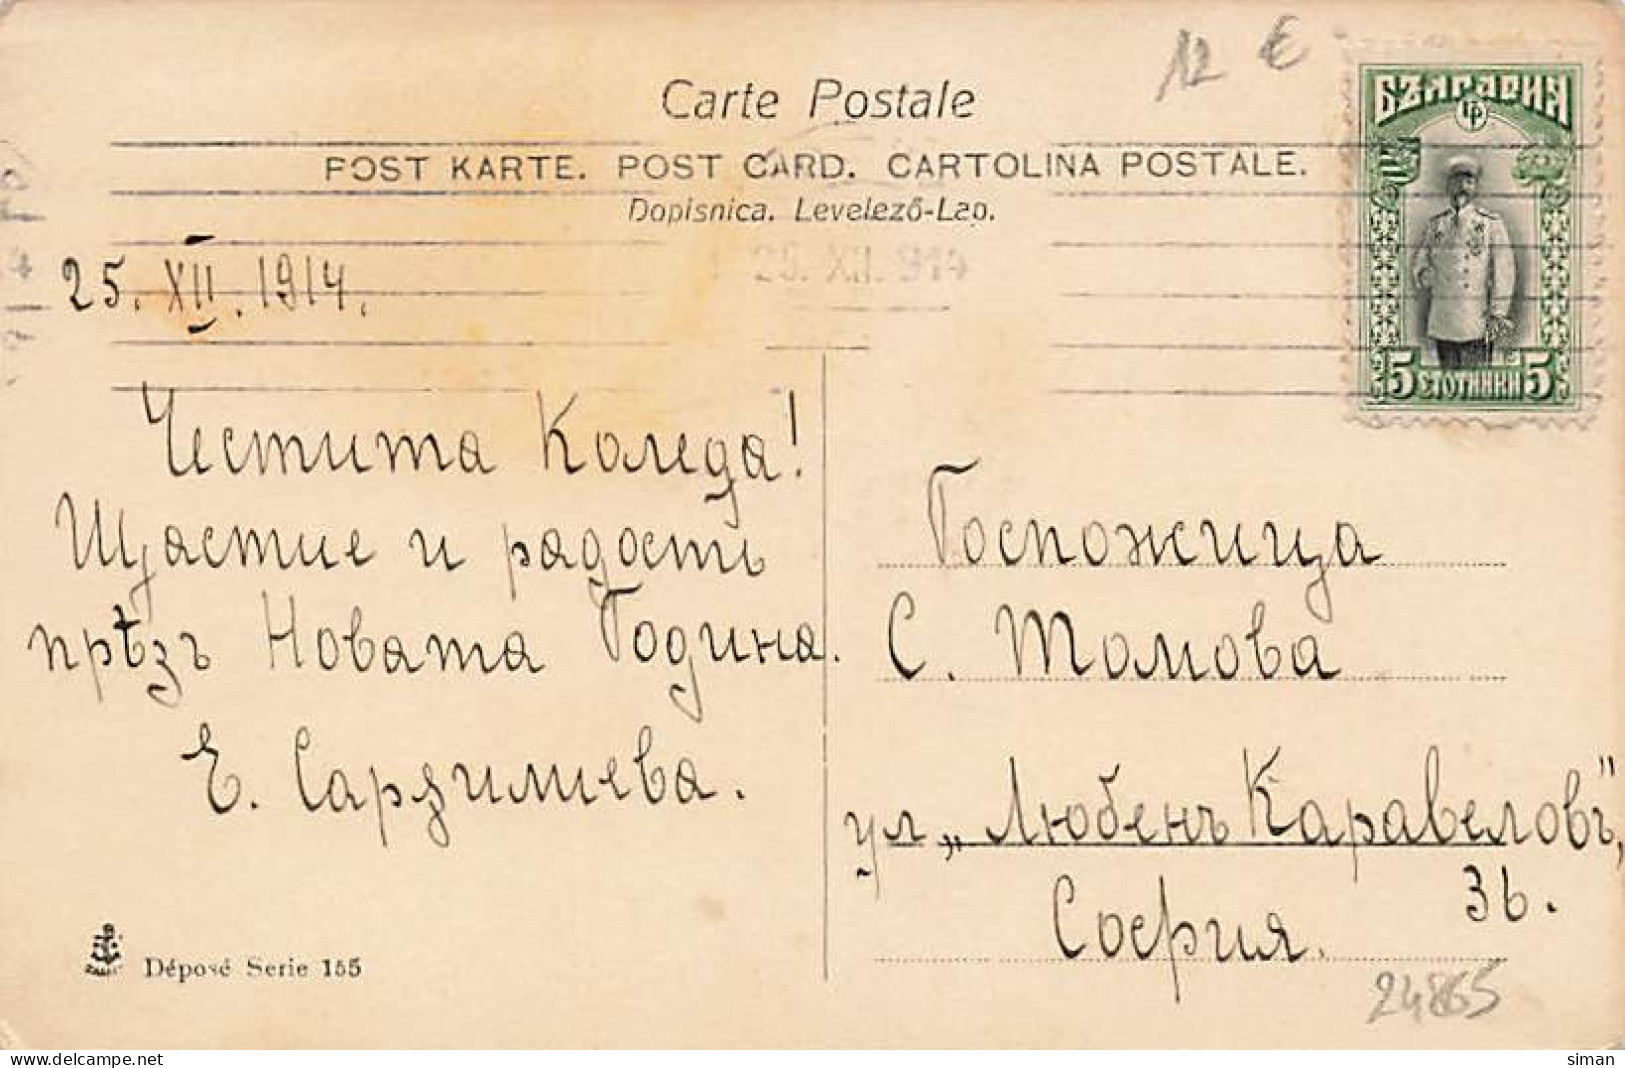 12 €
БЪЛГАРИЯ
5 СТОТИНКИ 5
Carte Postale
POST KARTE. POST CARD. CARTOLINA POSTALE.
Dopisnica. Levelező-Lap.
25. XII. 914
25. XII. 1914.
Честита Коледа!
Щастие и радость
прѣзъ Новата Година.
Е. Сарджилиева.
Госпожица
С. Томова
ул. „Любенъ Каравеловъ",
36.
София.
Déposé Serie 155
24865
siman
https://www.delcampe.net